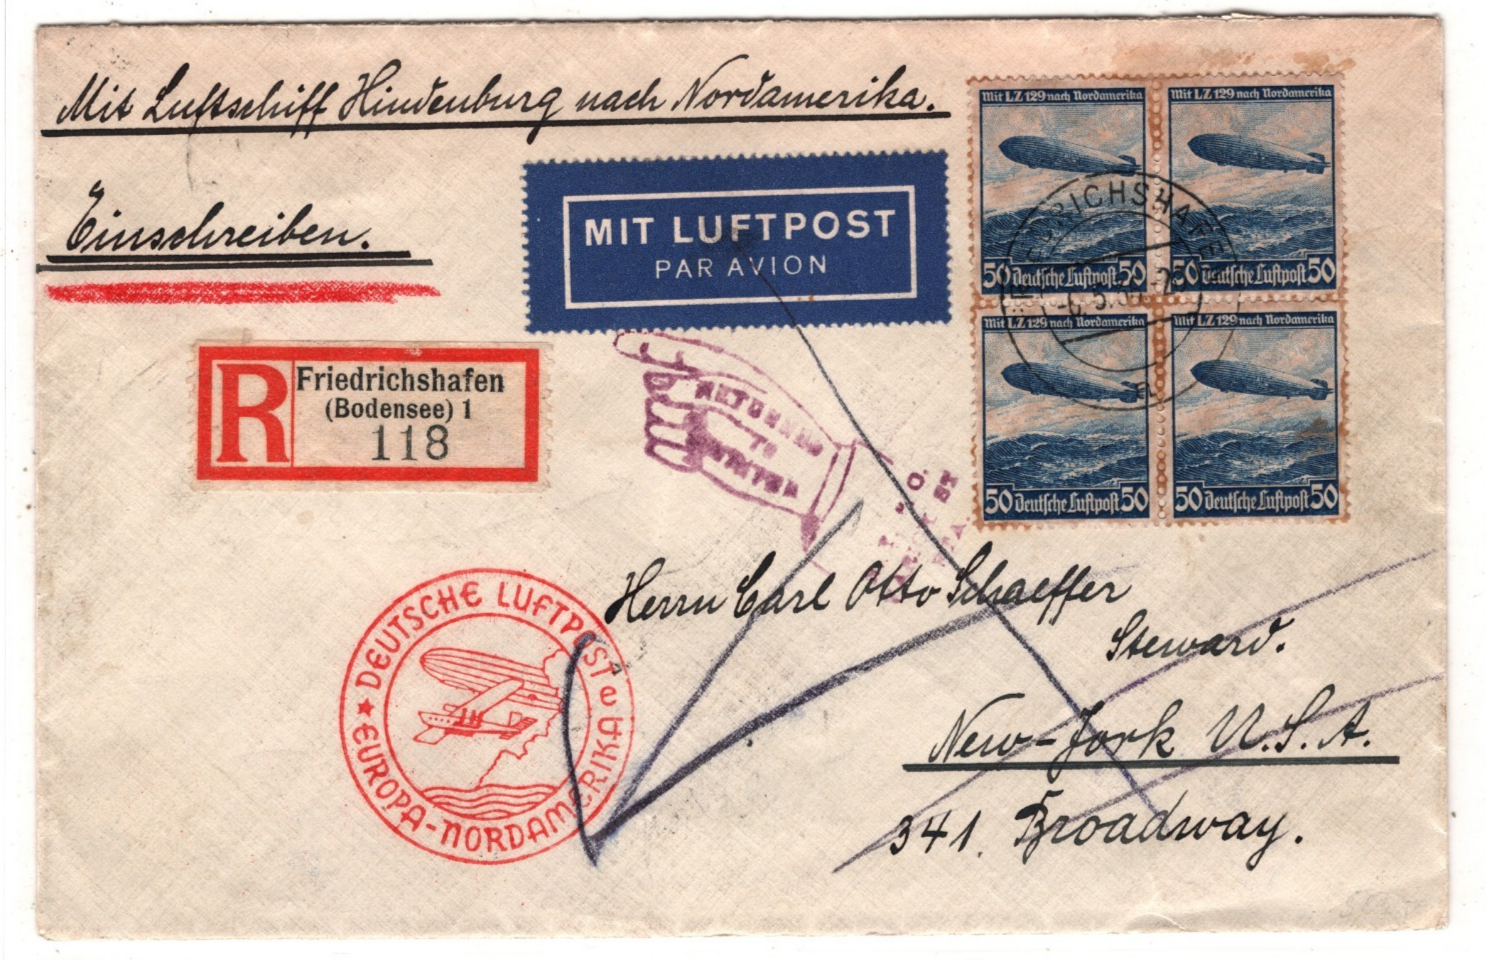 Mit Luftschiff Hindenburg nach Nordamerika.
Einschreiben.
MIT LUFTPOST
PAR AVION
Mit LZ 129 nach Nordamerika
50 Deutsche Luftpost 50
Mit LZ 129 nach Nordamerika
50 Deutsche Luftpost 50
Mit LZ 129 nach Nordamerika
50 Deutsche Luftpost 50
Mit LZ 129 nach Nordamerika
50 Deutsche Luftpost 50
R
Friedrichshafen
(Bodensee) 1
118
RETURNED
TO
DEUTSCHE LUFTPOST
EUROPA-NORDAMERIKA
Herrn Carl Otto Schaeffer
Steward.
New-York U.S.A.
341. Broadway.